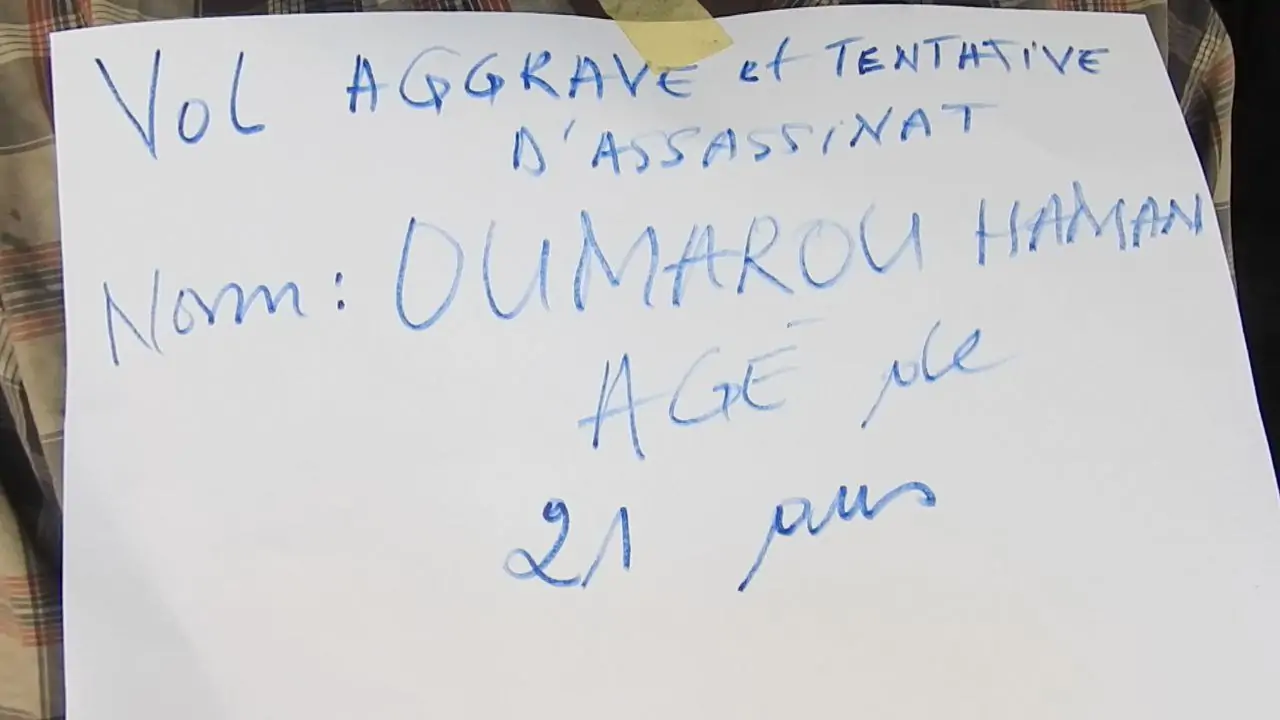 Vol AGGRAVE et TENTATIVE
D'ASSASSINAT
Nom: OUMAROU HAMAN
AGÉ de
21 ans